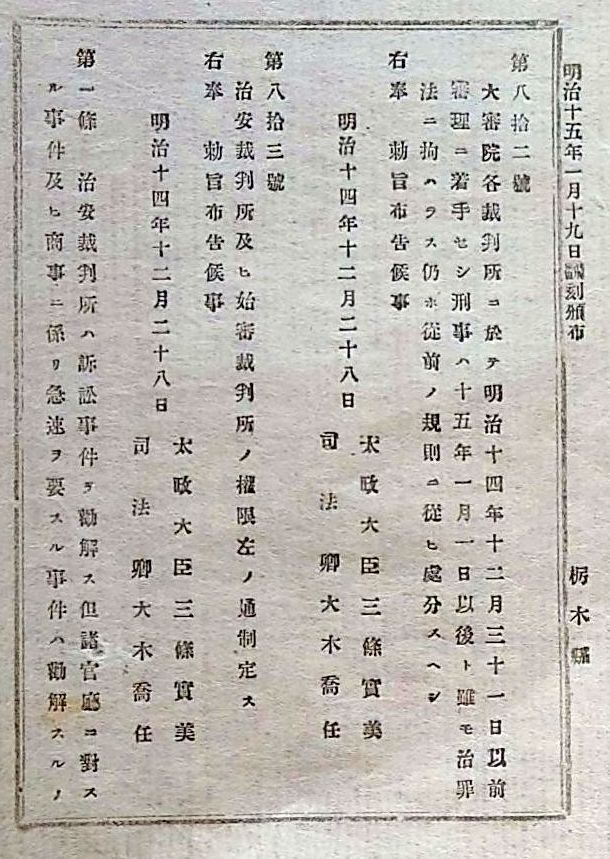 明治十五年一月十九日飜刻頒布
栃木縣
第八拾二號
大審院各裁判所ニ於テ明治十四年十二月三十一日以前
審理ニ着手セシ刑事ハ十五年一月一日以後ト雖モ治罪
法ニ拘ハラス仍ホ從前ノ規則ニ從ヒ處分スヘシ
右奉 勅旨布告候事
明治十四年十二月二十八日
太政大臣三條實美
司法卿大木喬任
第八拾三號
治安裁判所及ヒ始審裁判所ノ權限左ノ通制定ス
右奉 勅旨布告候事
明治十四年十二月二十八日
太政大臣三條實美
司法卿大木喬任
第一條 治安裁判所ハ訴訟事件ヲ勸解ス但諸官廳ニ對ス
ル事件及ヒ商事ニ係リ急速ヲ要スル事件ハ勸解スルノ